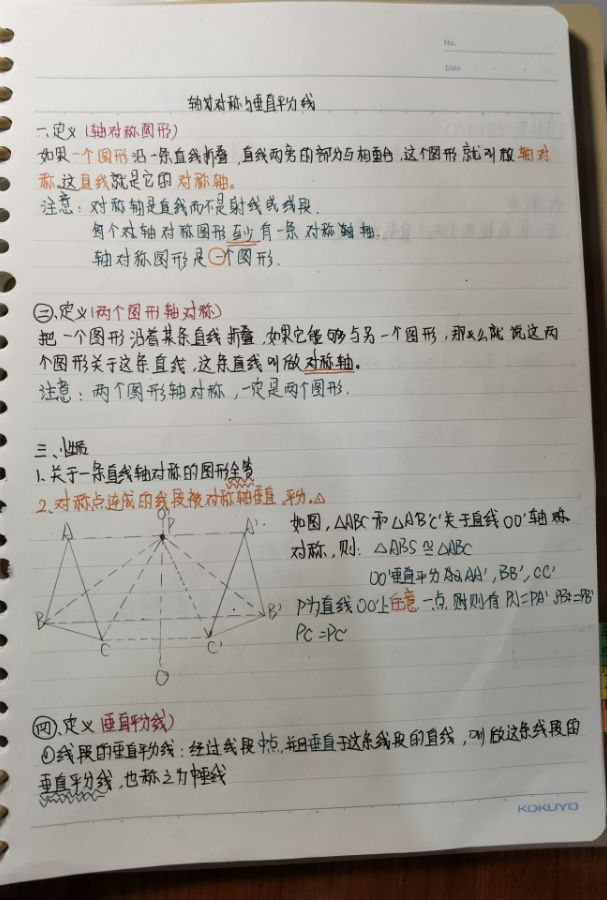 No.
Date
轴对对称与垂直平分线
一、定义(轴对称图形)
如果一个图形沿一条直线折叠,直线两旁的部分与相重合,这个图形就叫做轴对
称。这直线就是它的对称轴。
注意:对称轴是直线而不是射线或线段.
每个对轴对称图形至少有一条对称轴轴.
轴对称图形是一个图形.
二、定义(两个图形轴对称)
把一个图形沿着某条直线折叠,如果它能够与另一个图形,那么就说这两
个图形关于这条直线,这条直线叫做对称轴。
注意:两个图形轴对称,一定是两个图形.
三、性质
1.关于一条直线轴对称的图形全等
2.对称点连成的线段被对称轴垂直平分.△
如图,△ABC和△A'B'C'关于直线OO'轴称
对称,则: △ABS≌△ABC
OO'垂直平分AA',BB',CC'
P为直线OO'上任意一点,则有PA=PA',PB=PB'
PC=PC'
A
O'
P
A'
B
C
C'
B'
O
四、定义(垂直平分线)
①线段的垂直平分线:经过线段中点,并且垂直于这条线段的直线,叫做这条线段的
垂直平分线,也称之为中垂线
KOKUYO